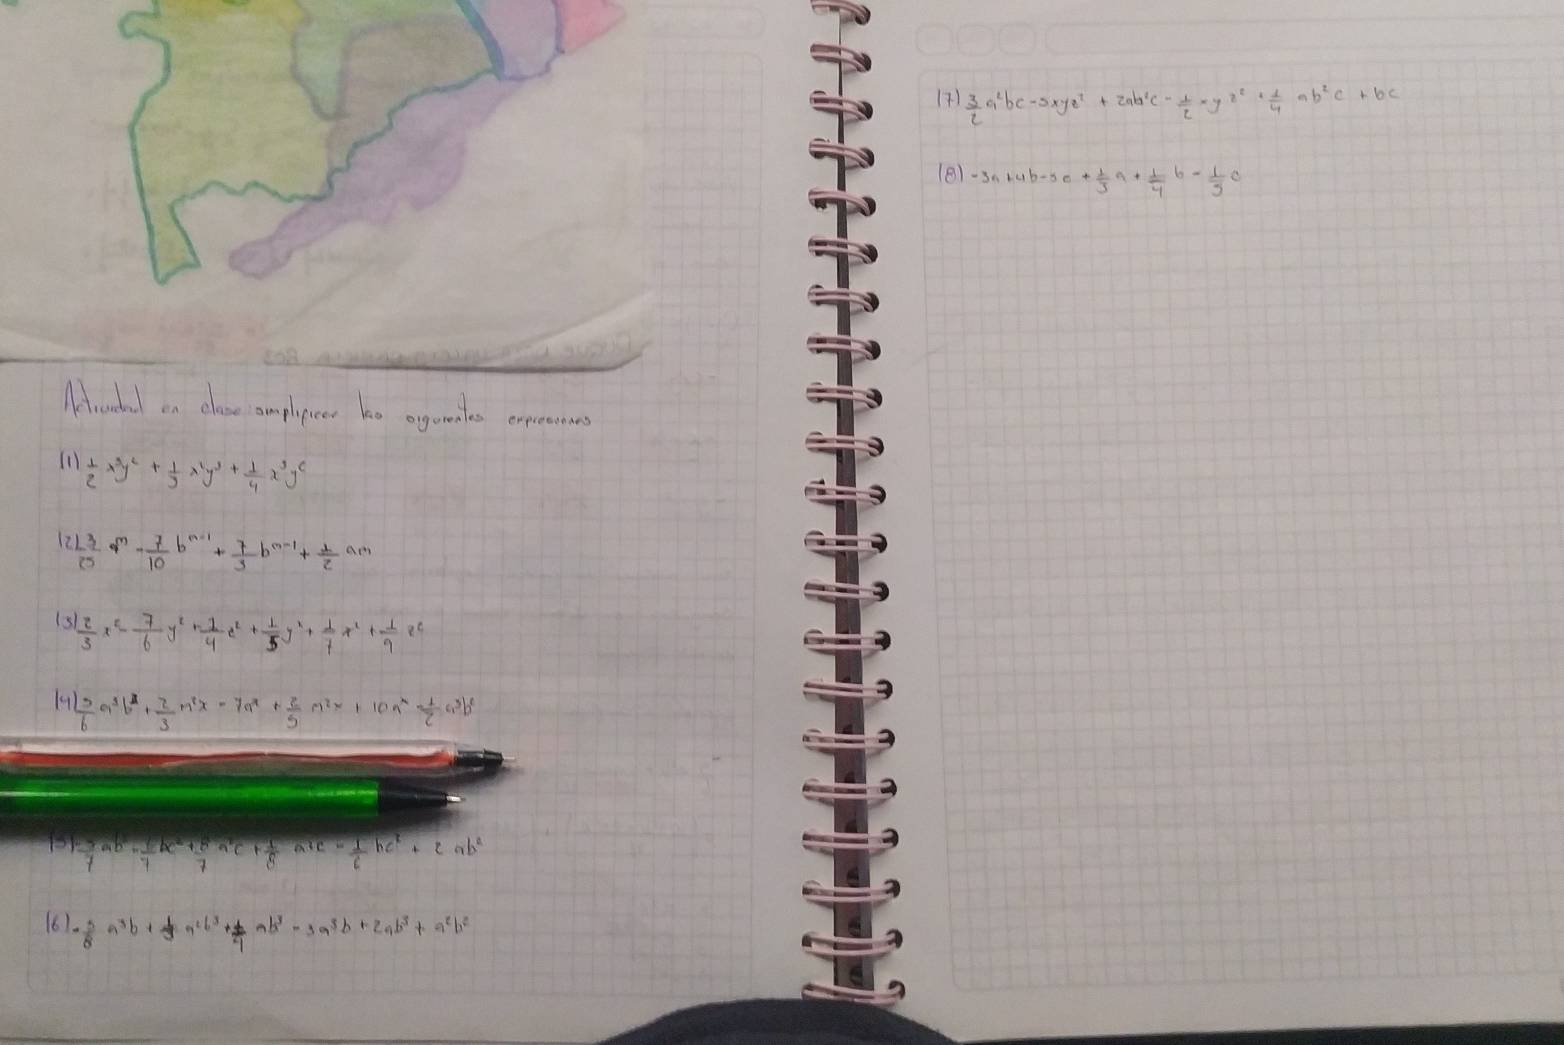 Actividad en clase: simplificar las siguientes expresiones
(1) 1/2 x³y² + 1/3 x²y³ + 1/4 x³y²
(2) 3/25 aᵐ - 7/10 bⁿ⁻¹ + 7/3 bⁿ⁻¹ + 1/2 am
(3) 2/3 x² - 7/6 y² + 1/4 z² + 1/5 y² + 1/7 x² + 1/9 z²
(4) 5/6 a³b² + 2/3 m²x - 7aˣ + 2/5 m²x + 10aˣ - 1/2 a³b²
ab² - 1/7 bc² + 8/7 a²c + 1/8 a²c - 1/2 bc² + 2ab²
(6) -5/8 a³b + 1/3 a²b³ + 1/4 ab³ - 3a³b + 2ab³ + a²b²
(7) 3/2 a²bc - 5xyz² + 2ab²c - 1/2 xyz² + 1/4 ab²c + bc
(8) -3a + 4b - 5c + 1/3 a + 1/4 b - 1/5 c